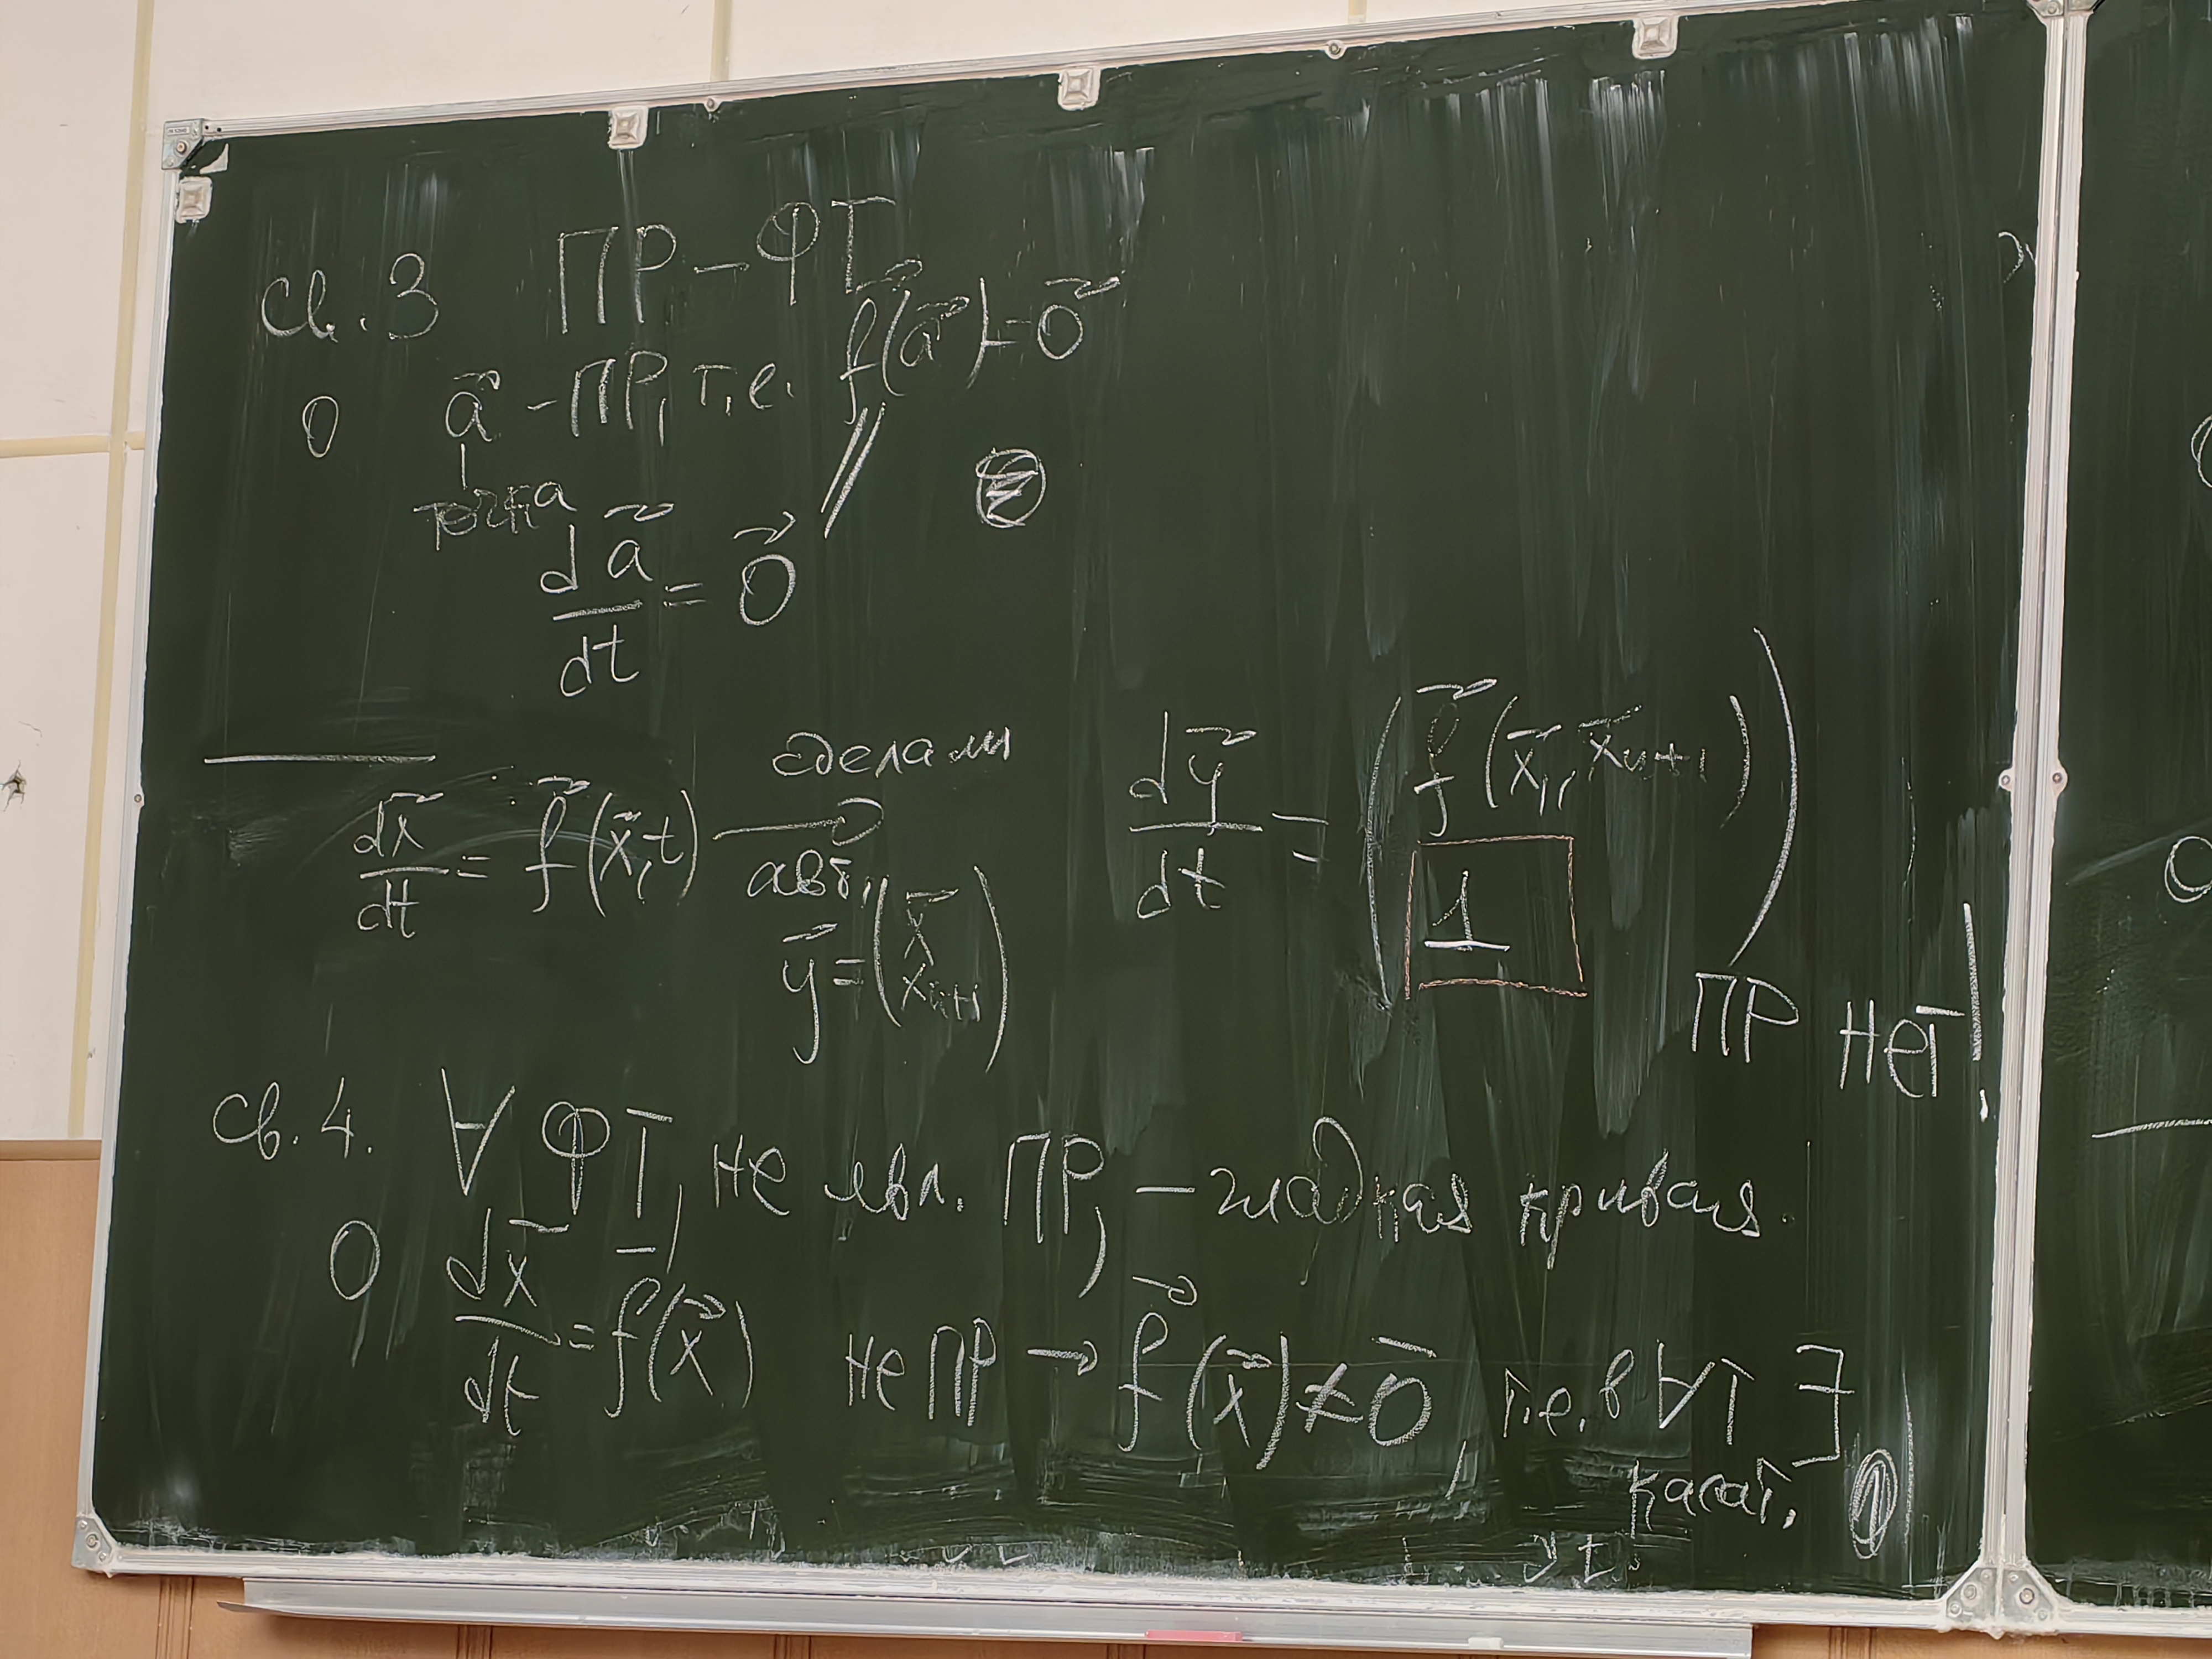 Св. 3 ПР – ФТ
O a⃗ – ПР, т.е. f⃗(a⃗) = 0⃗
точка
da⃗/dt = 0⃗
dx⃗/dt = f⃗(x⃗, t) сделали → авт. dy⃗/dt = (f⃗(x⃗, x_{n+1}) 1)
y⃗ = (x⃗ x_{n+1})
ПР нет!
Св. 4. ∀ ФТ, не явл. ПР, – гладкая кривая.
O dx⃗/dt = f⃗(x⃗) не ПР → f⃗(x⃗) ≠ 0⃗, т.е. в ∀ т ∃
касат.